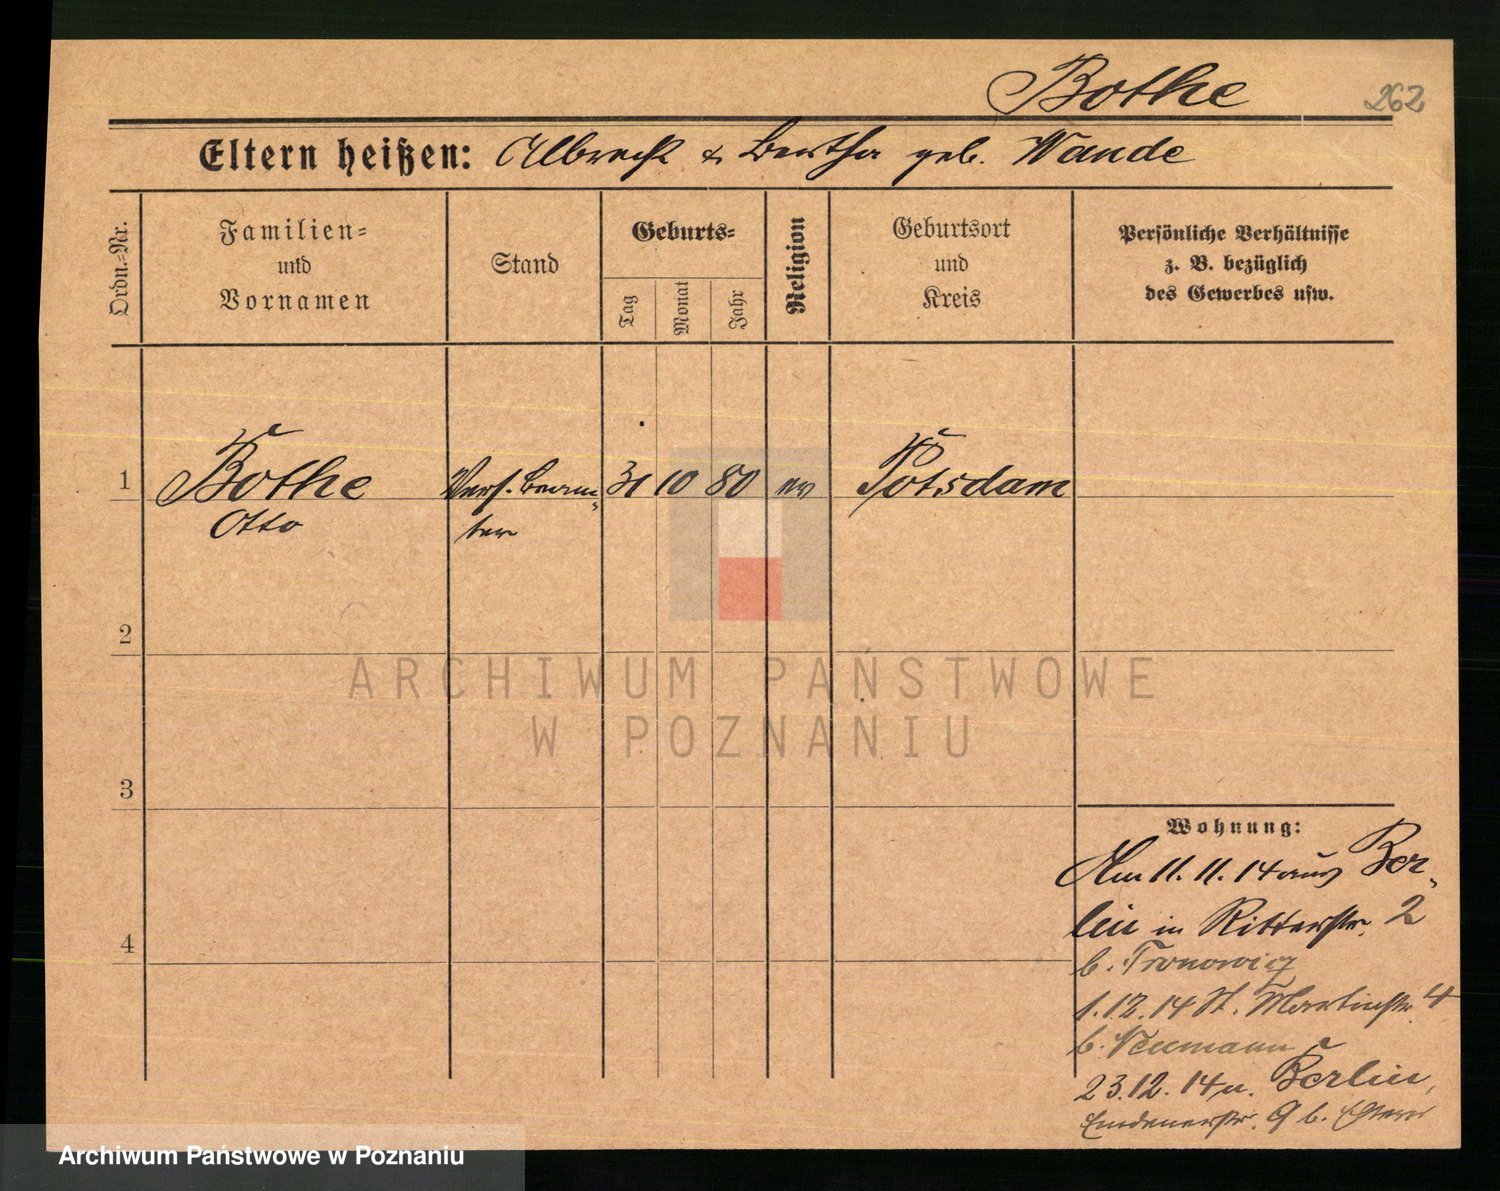 Bothe 262
Eltern heißen: Albrecht & Bertha geb. Wande
Ordn.-Nr.
Familien-
und
Vornamen
Stand
Geburts-
Tag
Monat
Jahr
Religion
Geburtsort
und
Kreis
Persönliche Verhältnisse
z. B. bezüglich
des Gewerbes usw.
1 Bothe Vers. Beam- 31 10 80 ev Potsdam
Otto ter
2
ARCHIWUM PAŃSTWOWE
W POZNANIU
3
Wohnung:
Am 11. 11. 14 aus Ber-
lin in Ritterstr. 2
4
b.
1.12.14 St. Martinstr. 4
b. Neumann
23.12.14 n. Berlin,
Emdenerstr. 9 b. Eltern
Archiwum Państwowe w Poznaniu